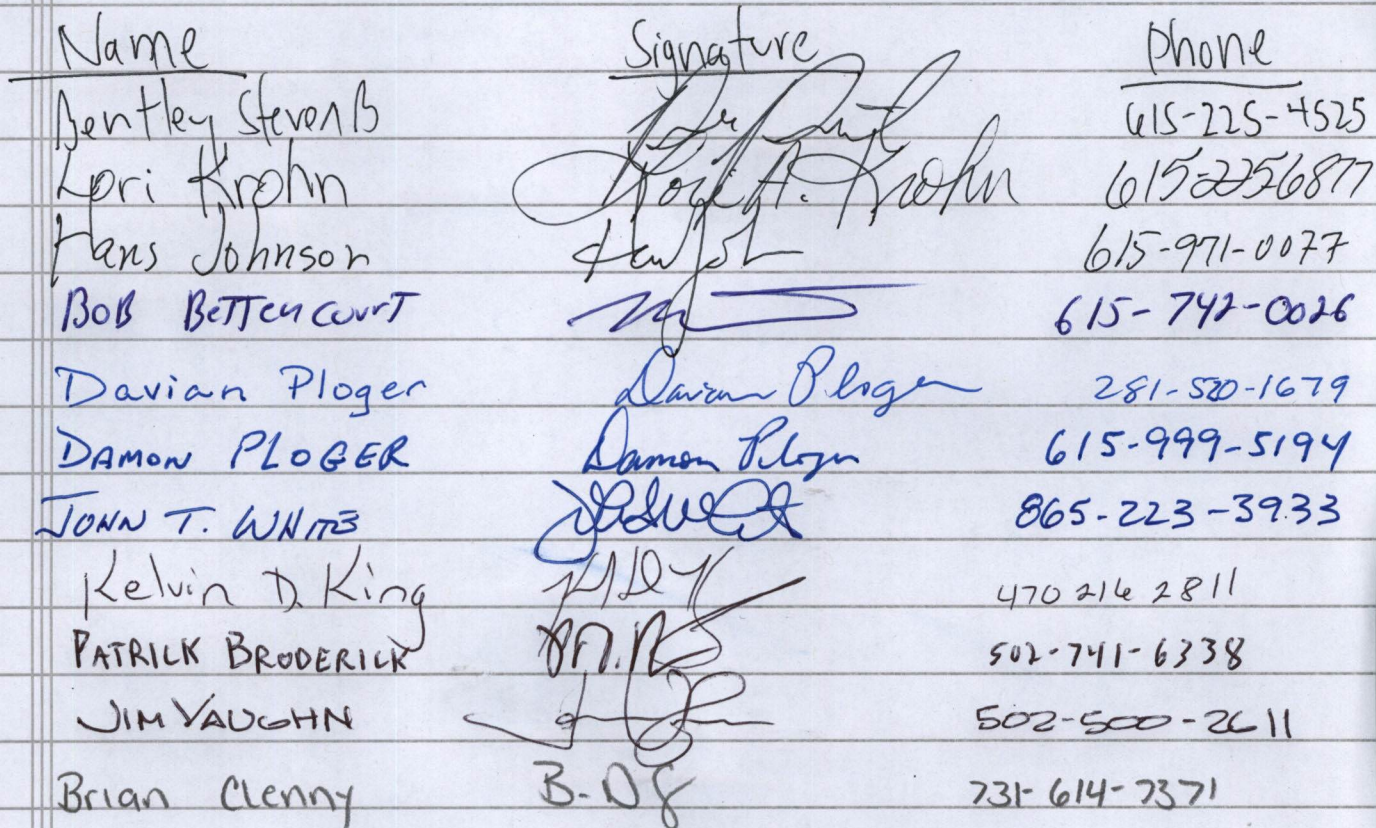 Name Signature Phone
Bentley StevenB 615-225-4525
Lori Krohn Lori A. Krohn 615-2256877
Hans Johnson 615-971-0077
BOB BETTENCOURT 615-742-0026
Davian Ploger Davian Ploger 281-520-1679
DAMON PLOGER Damon Ploger 615-999-5194
JOHN T. WHITE 865-223-3933
Kelvin D. King 470 216 2811
PATRICK BRODERICK 502-741-6338
JIM VAUGHN 502-500-2611
Brian Clenny 731-614-7371